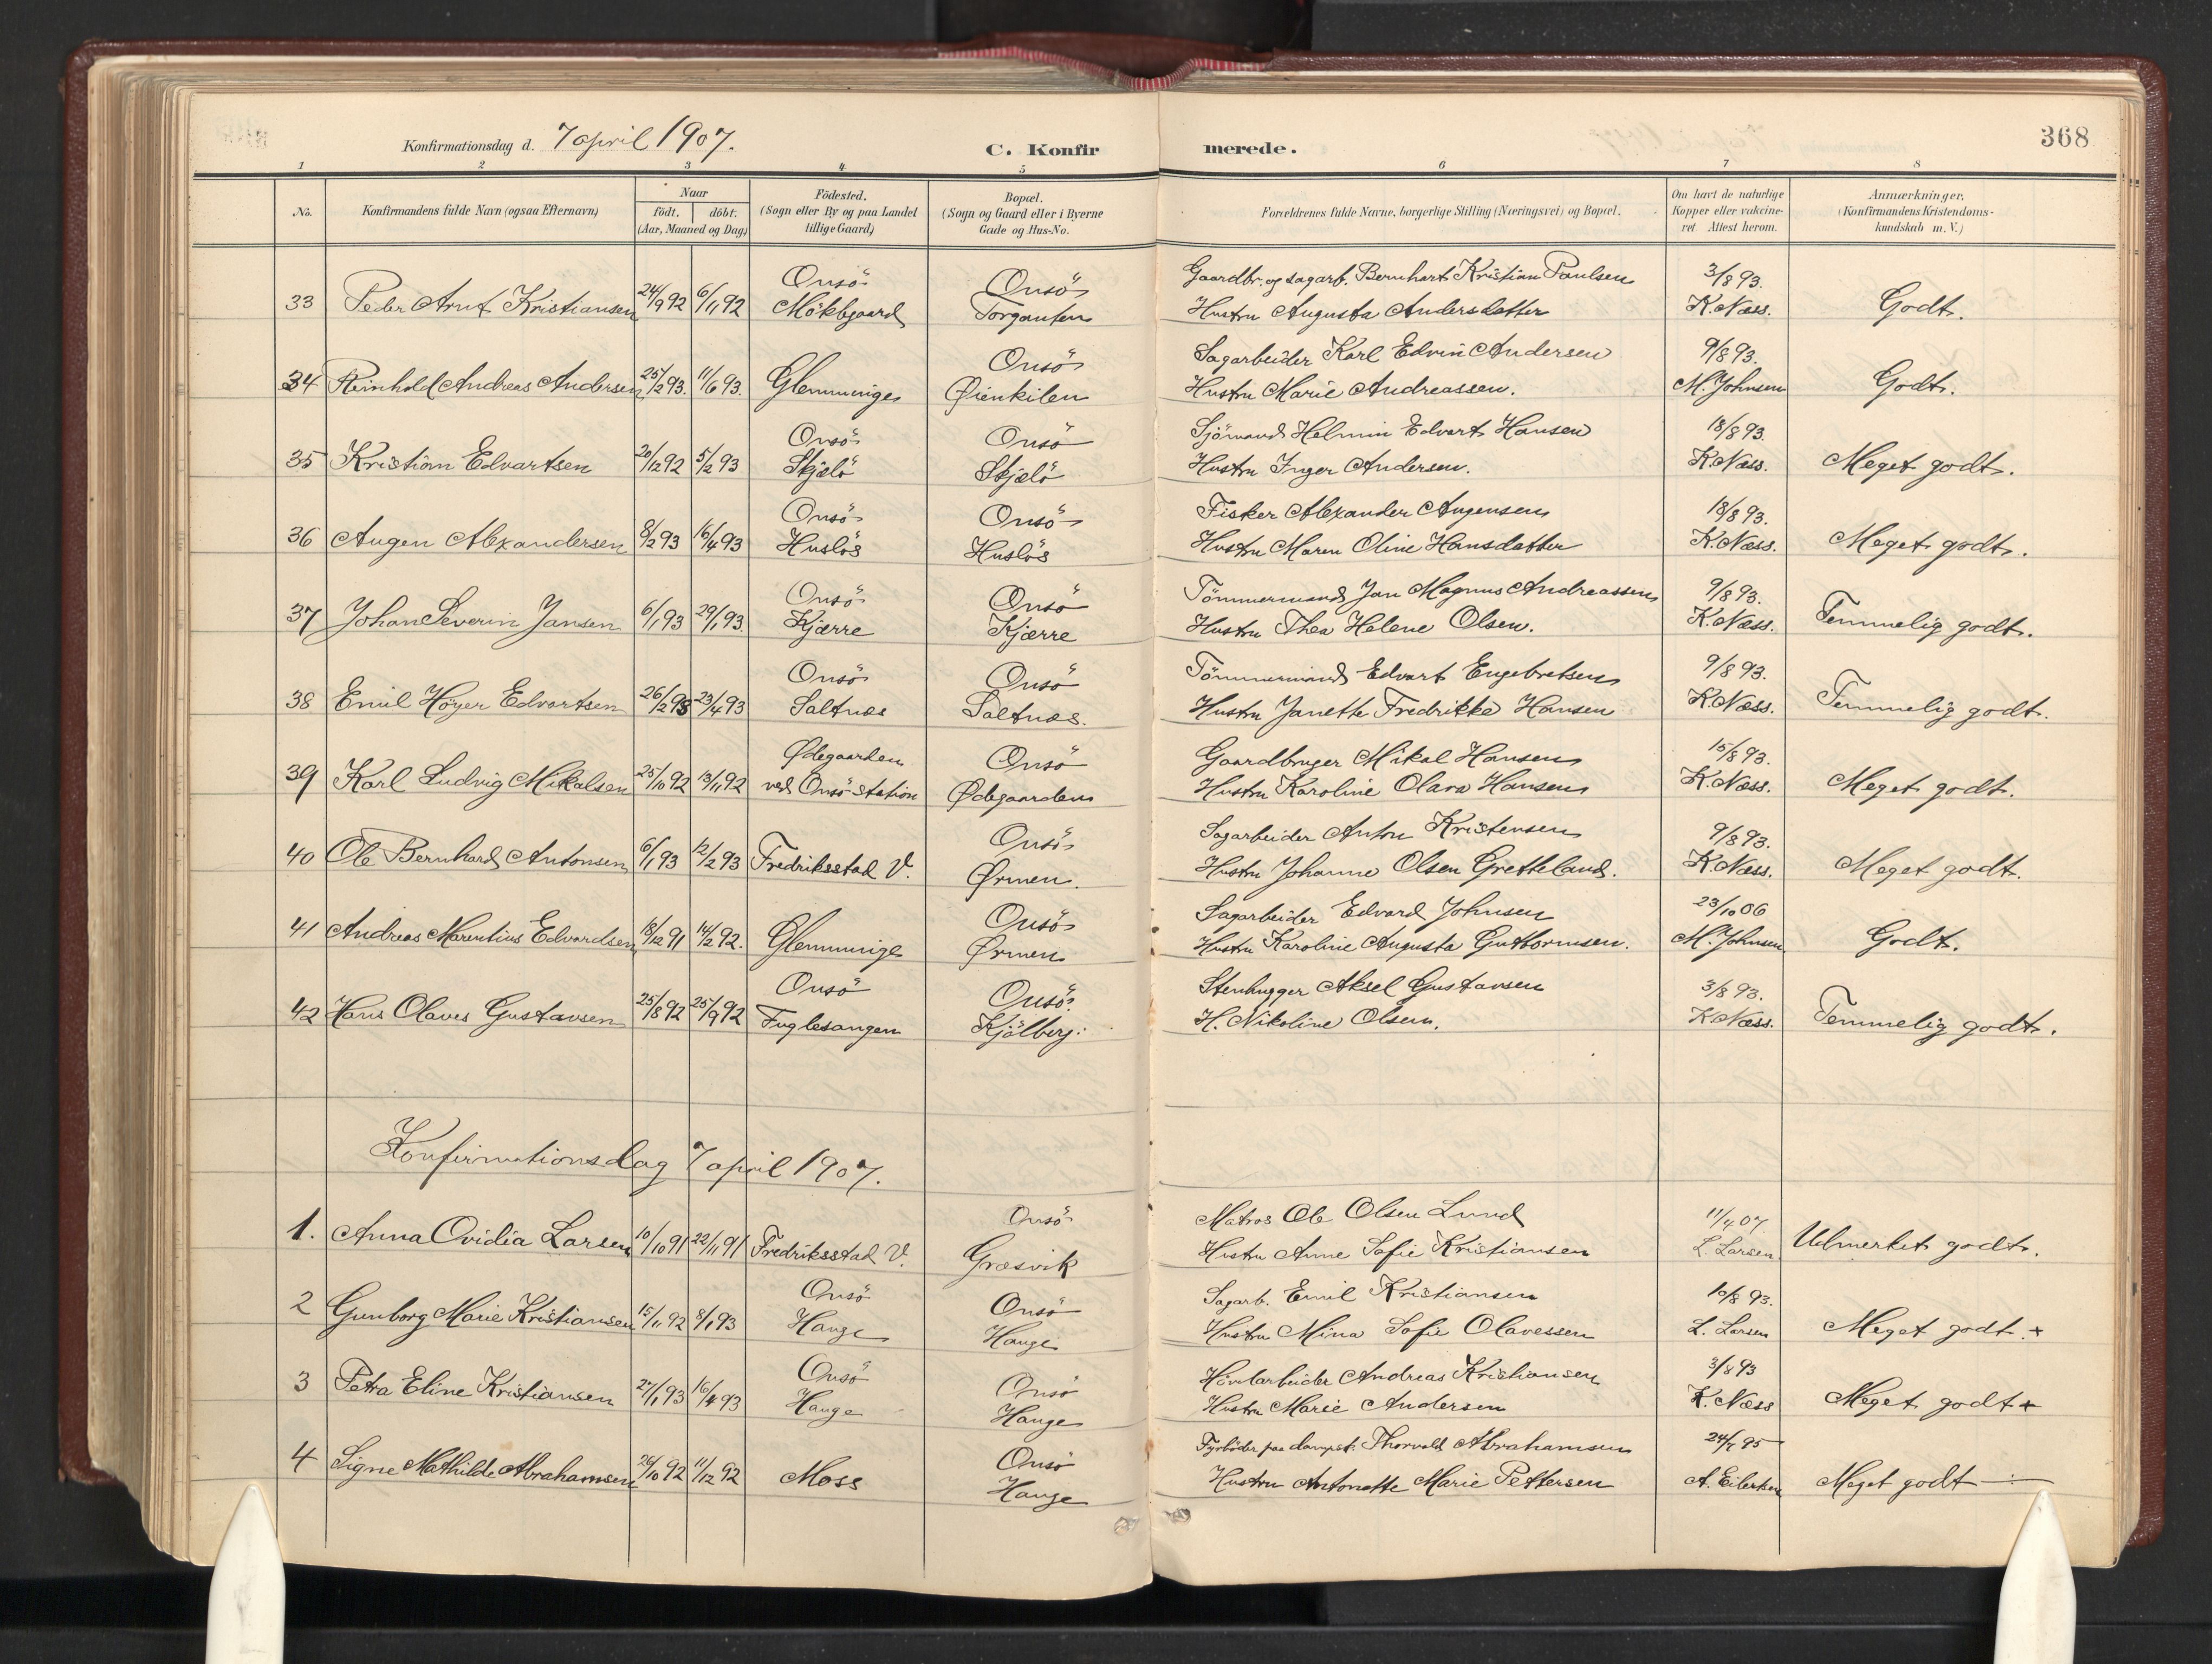 Konfirmationsdag d. 7 april 1907.
C. Konfirmerede.
368
1 2 3 4 5 6 7 8
No.
Konfirmandens fulde Navn (ogsaa Efternavn)
Naar
födt. döbt.
(Aar, Maaned og Dag)
Födested.
(Sogn eller By og paa Landet
tillige Gaard)
Bopæl.
(Sogn og Gaard eller i Byerne
Gade og Hus-No.
Forældrenes fulde Navne, borgerlige Stilling (Næringsvei) og Bopæl.
Om havt de naturlige
Kopper eller vakcine-
ret Attest herom.
Anmærkninger,
(Konfirmandens Kristendoms-
kundskab m. V.)
Onsö Onsö Gaardbr. og sagarb. Bernhart Kristian Paulsen 3/8 93.
33 Peder Arnt Kristiansen 24/9 92 6/11 92 Mökbgaard Torgauten Hustru Augusta Andersdatter K. Næss. Godt.
Onsö Sagarbeider Karl Edvin Andersen 9/8 93.
34 Reinhold Andreas Andersen 25/2 93. 11/6 93. Glemminge Øienkilen Hustru Marie Andreassen. M. Johnsen Godt.
Onsö Onsö Sjömand Helmin Edvart Hansen 18/8 93.
35 Kristian Edvartsen 20/12 92 5/2 93 Skjælö Skjælö Hustru Inger Andersen. K. Næss. Meget godt.
Onsö Onsö Fisker Alexander Augensen 18/8 93.
36 Augen Alexandersen 8/2 93 16/4 93 Huslös Huslös Hustru Maren Oline Hansdatter K. Næss. Meget godt.
Onsö Onsö Tömmermand Jan Magnus Andreassen 9/8 93.
37 Johan Severin Jansen 6/1 93 29/1 93. Kjærre Kjærre Hustru Thea Helene Olsen. K. Næss. Temmelig godt.
Onsö Onsö Tömmermand Edvart Engebretsen 9/8 93.
38 Emil Høyer Edvartsen 26/2 93 23/4 93 Saltnæs Saltnæs. Hustru Janette Fredrikke Hansen K. Næss. Temmelig godt.
Ødegaarden Onsö Gaardbruger Mikal Hansen 15/8 93.
39 Karl Ludvig Mikalsen 25/10 92 13/11 92 ved Onsö station Ødegaarden Hustru Karoline Olava Hansen K. Næss. Meget godt.
Onsö Sagarbeider Anton Kristensen 9/8 93.
40 Ole Bernhard Antonsen 6/1 93 12/2 93 Fredriksstad V. Ørmen. Hustru Johanne Olsen Gretteland. K. Næss. Meget godt.
Onsö Sagarbeider Edvard Johnsen 23/10 06
41 Andreas Marentius Edvardsen 18/12 91 14/2 92. Glemminge Ørmen Hustru Karoline Augusta Guttormsen. M. Johnsen Godt.
Onsö Onsö Stenhugger Aksel Gustavsen 3/8 93.
42 Hans Olaves Gustavsen 25/8 92 25/9 92 Fuglesangen Kjölberg. H. Nikoline Olsen. K. Næss. Temmelig godt.
Konfirmationsdag 7 april 1907.
Onsö Matros Ole Olsen Lund 11/4 07
1. Anna Ovidia Larsen 10/10 91 22/11 91 Fredriksstad V. Græsvik Hustru Anne Sofie Kristiansen L. Larsen Udmerket godt.
Onsö Onsö Sagarb. Emil Kristiansen 10/8 93.
2 Gunborg Marie Kristiansen 15/11 92 8/1 93 Hauge Hauge Hustru Mina Sofie Olavessen L. Larsen Meget godt. +
Onsö Onsö Hövlarbeider Andreas Kristiansen 3/8 93
3 Petra Eline Kristiansen 27/1 93 16/4 93 Hauge Hauge Hustru Marie Andersen K. Næss Meget godt +
Onsö Fyrböder paa dampsk. Thorvald Abrahamsen 24/7 95
4 Signe Mathilde Abrahamsen 26/10 92 11/12 92 Moss Hauge Hustru Antonette Marie Pettersen A. Eilertsen Meget godt